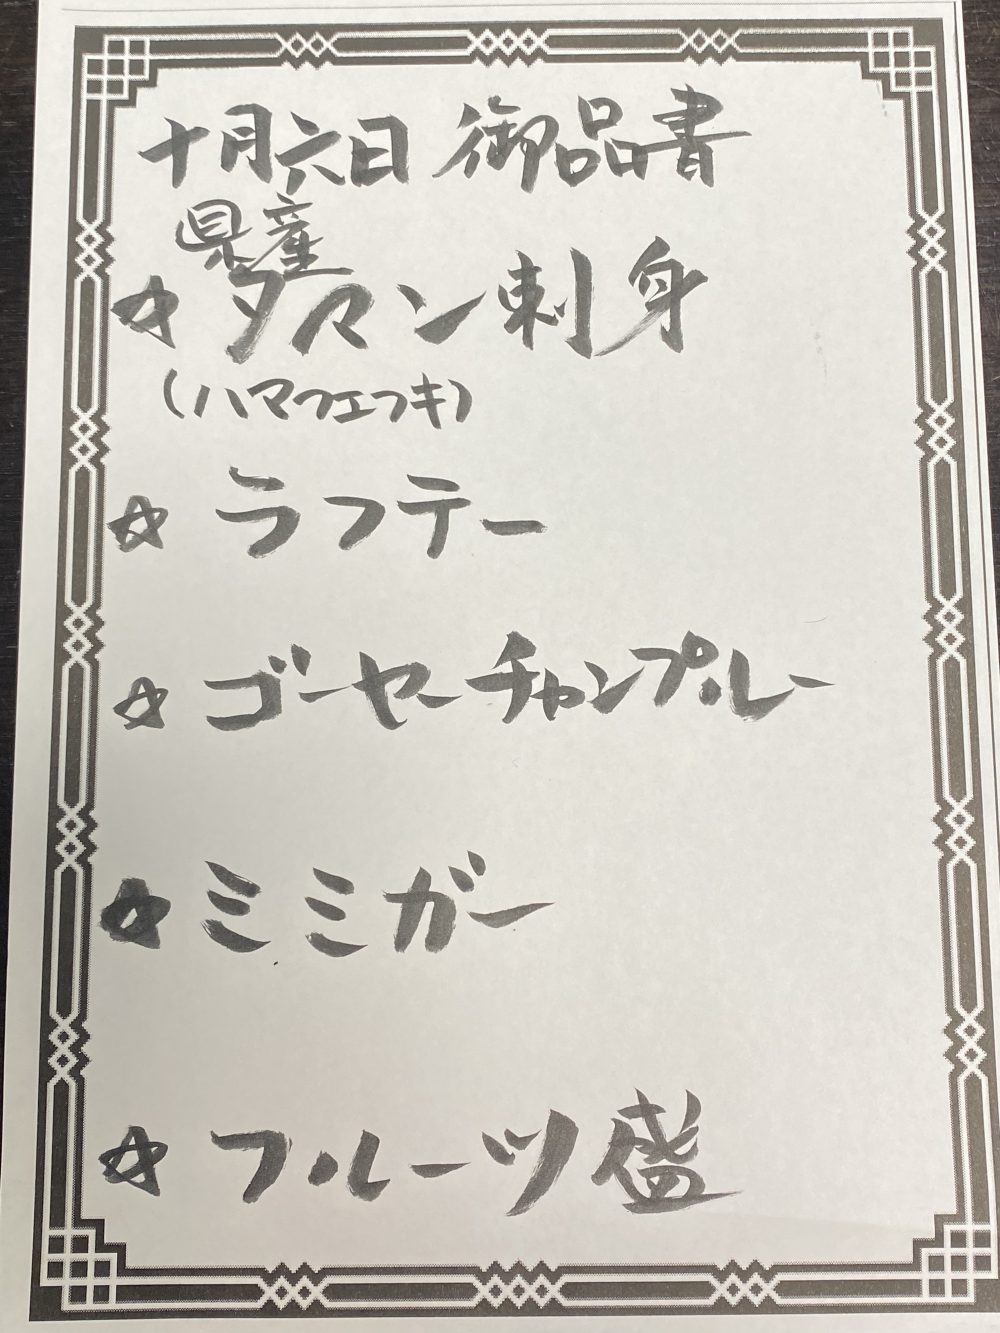 十月六日 御品書
県産
☆ タマン刺身
(ハマフエフキ)
☆ ラフテー
☆ ゴーヤーチャンプルー
☆ ミミガー
☆ フルーツ盛